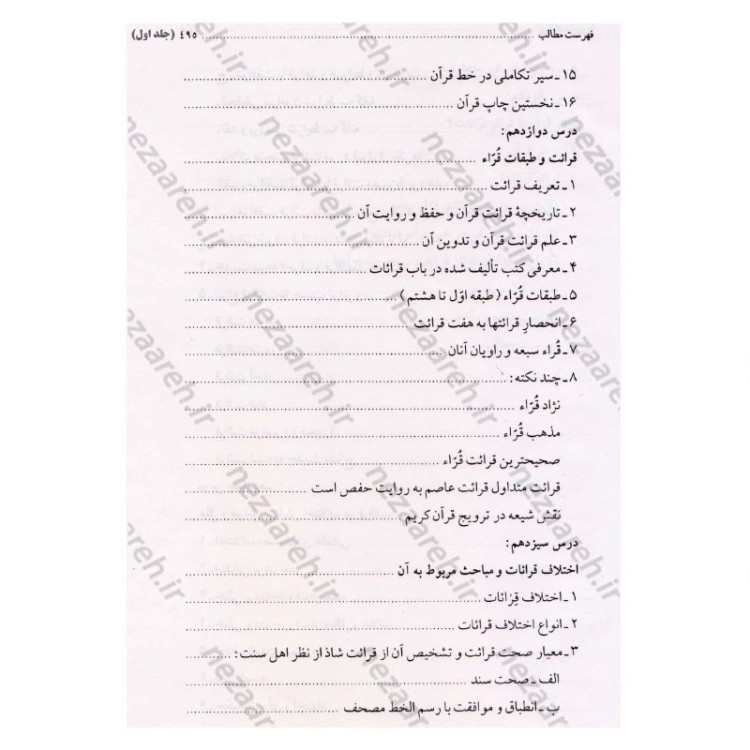 فهرست مطالب ........ ۴۹۵ (جلد اول)
۱۵ـ سیر تکاملی در خط قرآن ........
۱۶ـ نخستین چاپ قرآن ........
درس دوازدهم:
قرائت و طبقات قُرّاء ........
۱ـ تعریف قرائت ........
۲ـ تاریخچهٔ قرائت قرآن و حفظ و روایت آن ........
۳ـ علم قرائت قرآن و تدوین آن ........
۴ـ معرفی کتب تألیف شده در باب قرائات ........
۵ـ طبقات قُرّاء (طبقه اوّل تا هشتم) ........
۶ـ انحصارِ قرائتها به هفت قرائت ........
۷ـ قُراء سبعه و راویان آنان ........
۸ـ چند نکته: ........
نژاد قُرّاء ........
مذهب قُرّاء ........
صحیحترین قرائت قُرّاء ........
قرائت متداول قرائت عاصم به روایت حفص است ........
نقش شیعه در ترویج قرآن کریم ........
درس سیزدهم:
اختلاف قرائات و مباحث مربوط به آن ........
۱ـ اختلاف قِرائات ........
۲ـ انواع اختلاف قرائات ........
۳ـ معیار صحت قرائت و تشخیص آن از قرائت شاذ از نظر اهل سنت: ........
الف ـ صحت سند ........
ب ـ انطباق و موافقت با رسم الخط مصحف ........
nezaareh.ir